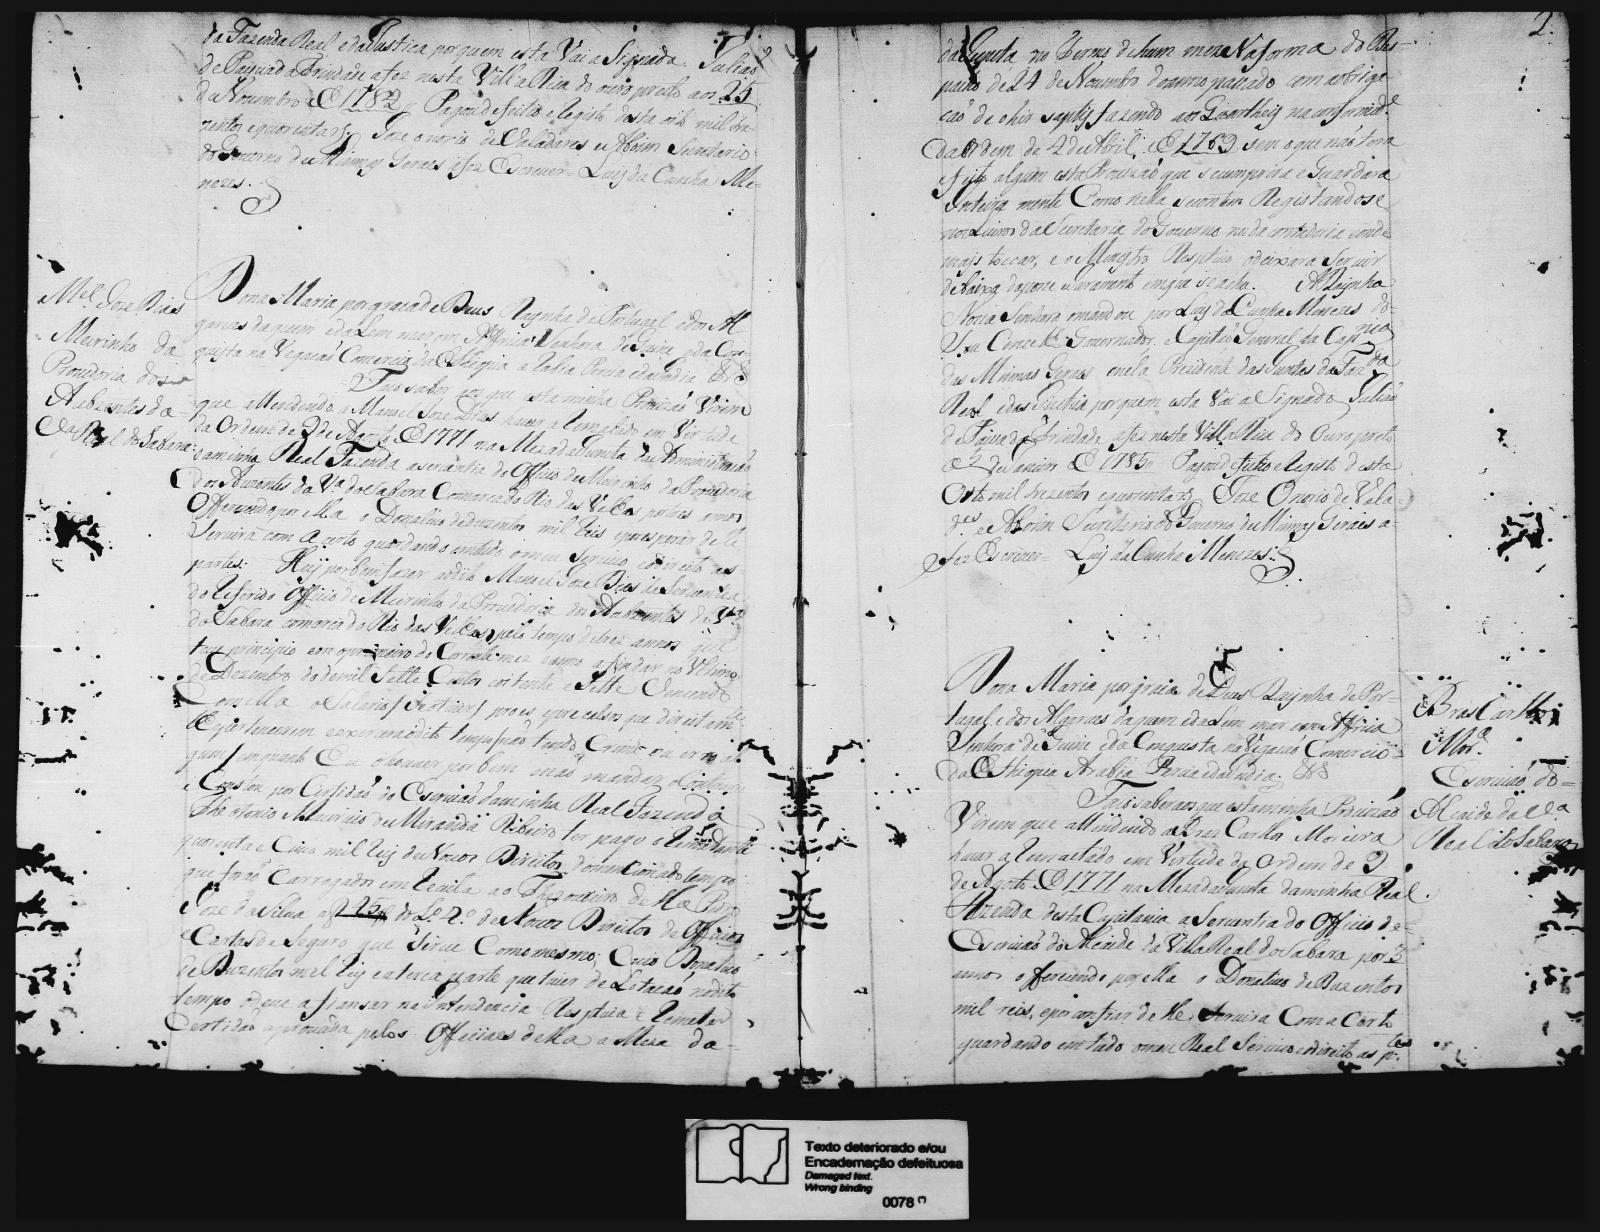 da Fazenda Real e da Justiça por quem esta Vai aSignada. Julião
de Paiva da Trindade a fez nesta Villa Rica do ouro preto aos 25
de Novembro de 1782 Pagou de feitio e Registo desta oito mil du
zentos e quorenta rs. Joze onorio de Valadares e Aboim Secretario
do Governo de Minnas Geraes a fez Escrever - Luis da Cunha Me-
nezes.
M.el Joze Dias
Meirinho da
Provedoria dos
Auzentes da
V.a Real do Sabara
Dona Maria por graça de Deus Raynha de Portugal e dos Al
garves daquem e dalem mar em Affrica Senhora de Guine e da Con-
quista na Vegação Comercio da Ethiopia Arabia Percia e da India &&
Faço saber aos que esta minha Provizão Virem
que attendendo a Manoel Joze Dias haver a Rematado em Virtude
da Ordem de 2 de Agosto de 1771 na Meza da Junta da Administração
da minha Real Fazenda a serventia do Officio de Meirinho da Provedoria
dos Auzentes da V.a do Sabara Comarca do Rio das Velhas por tres annos
Offerecendo por ella o Donativo de duzentos mil Reis e por esperar delle
Servirá com a certo guardando em tudo o meu Serviço e direito as
partes: Hey por bem fazer ao dito Manoel Joze Dias da Serventia
do Referido Officio de Meirinho da Provedoria dos Auzentes da V.a
do Sabara comarca do Rio das Velhas pelo tempo de trez annos que
teve principio em o primeiro do Corrente mez e anno a findar no Ultimo
de Dezembro do de mil Sette Centos oitenta e Sette Vencendo
Com ella o Salario / Se o tiver / proes e precalsos que direitam.te
lhe pertencerem e exercerá o dito tempo não tendo Crime ou erro al
gum / emquanto Eu o houver por bem e não mandar o Contrario
e Constou por Certidão do Escrivão da minha Real Fazenda
The otonio Mauricio de Miranda Ribeiro ter pago o Rematante
quorenta e Cinco mil Reis de Novos Direitos do mencionado tempo
que forão Carregados em Receita ao Thezoureiro della Pedro
Joze da Silva a f 125 do L.o 2.o de Novos Direitos de Officios
e Cartas de Seguro que Serve Com o mesmo; Cujo Donativo
de Duzentos mil Reis e a terça parte que tiver de Lotação no dito
tempo o deve a fiansar na intendencia Respectiva e Remeter
Certidão aprovada pelos Officiaes della a Meza da
2.
da Junta no Termo de hum mez na forma do Des-
pacho de 24 de Novembro do anno passado com obriga-
ção de o hir satisfazendo aos Quarteis na conformid.e
da Ordem de 4 de Abril de 1769 sem o que não tera
effeito algum esta Provizão que se cumprira e Guardara
Inteira mente Como nella se contem Registandose
nos Livros da Secretaria do Governo na da contadoria e onde
mais toccar, e o Ministro Respectivo o deixara Servir
debaixo da posse e Juramento em que se acha. A Raynha
Nossa Senhora o mandou por Luis da Cunha Menezes do
Seu Concelho Governador e Capitão General da Cap.nia
das Minnas Geraes e nella Prezidente das Juntas da Faz.da
Real e das Justiça por quem esta Vai aSignada Julião
de Paiva da Trindade a fez nesta Villa Rica do Ouro preto
a 5 de Janeiro de 1785 Pagou de feitio e Registo desta
Oito mil duzentos e quorenta rs Joze Onorio de Vala
des e Aboim Secretario do Governo de Minnas Gerais a
fez Escrever - Luis da Cunha Menezes.
Bras Carllos
Mor.a
Escrivão do
Alcaide da V.a
Real do Sabara
Dona Maria por graça de Deus Raynha de Por-
tugal e dos Algarves daquem e dalem mar em Affrica
Senhora de Guine e da Conquista na Vegação Comercio
da Ethiopia Arabia Percia e da India &&
Faço saber aos que esta minha Provizão
Virem que attendendo a Bras Carlos Moreira
haver a Remactado em Virtude da Ordem de 2
de Agosto de 1771 na Meza da Junta da minha Real
Fazenda desta Capitania a Serventia do Officio de
Escrivão do Alcaide da Villa Real do Sabara por 3
annos offerecendo por ella o Donativo de Duzentos
mil reis, e por confiar delle Servira Com a Certo
guardando em tudo o meu Real Serviço e direito as p.tes
Texto deteriorado e/ou
Encadernação defeituosa
Damaged text.
Wrong binding
0078